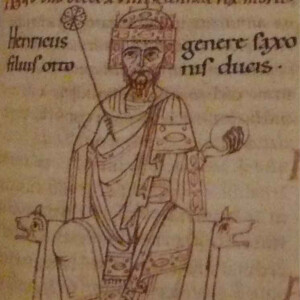 Henricus genere saxo
filius otto nis ducis.